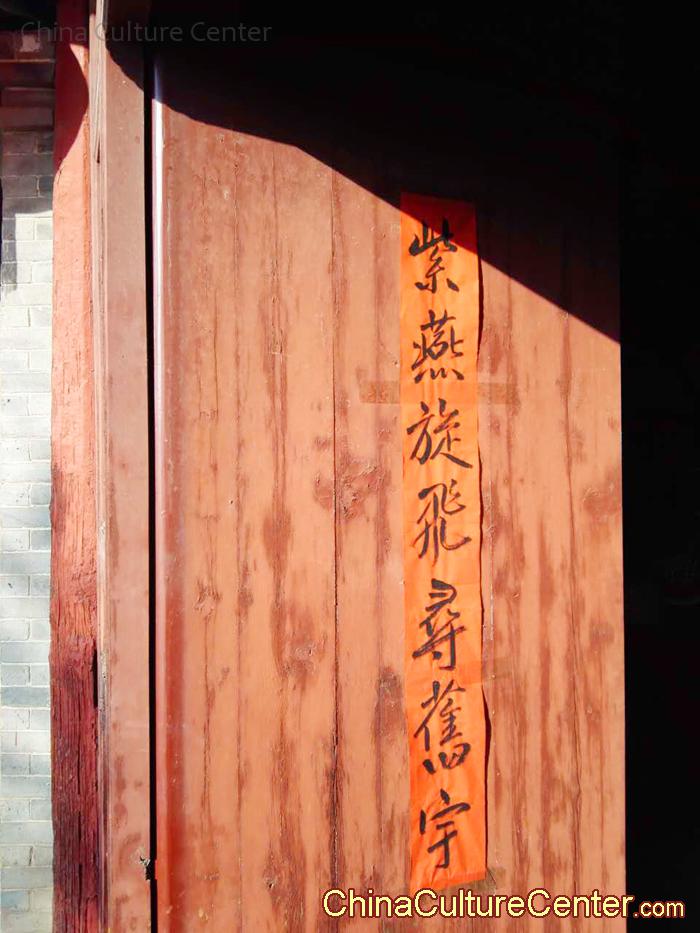 China Culture Center
紫燕旋飛尋舊宇
ChinaCultureCenter.com